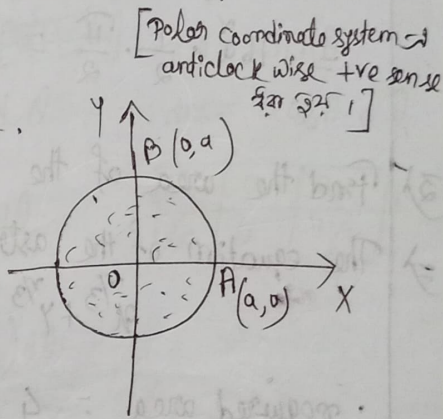 [Polar coordinate system →
anticlock wise +ve sense
ধরা হয় ।]
Y
B (0,a)
O
A(a,0)
X